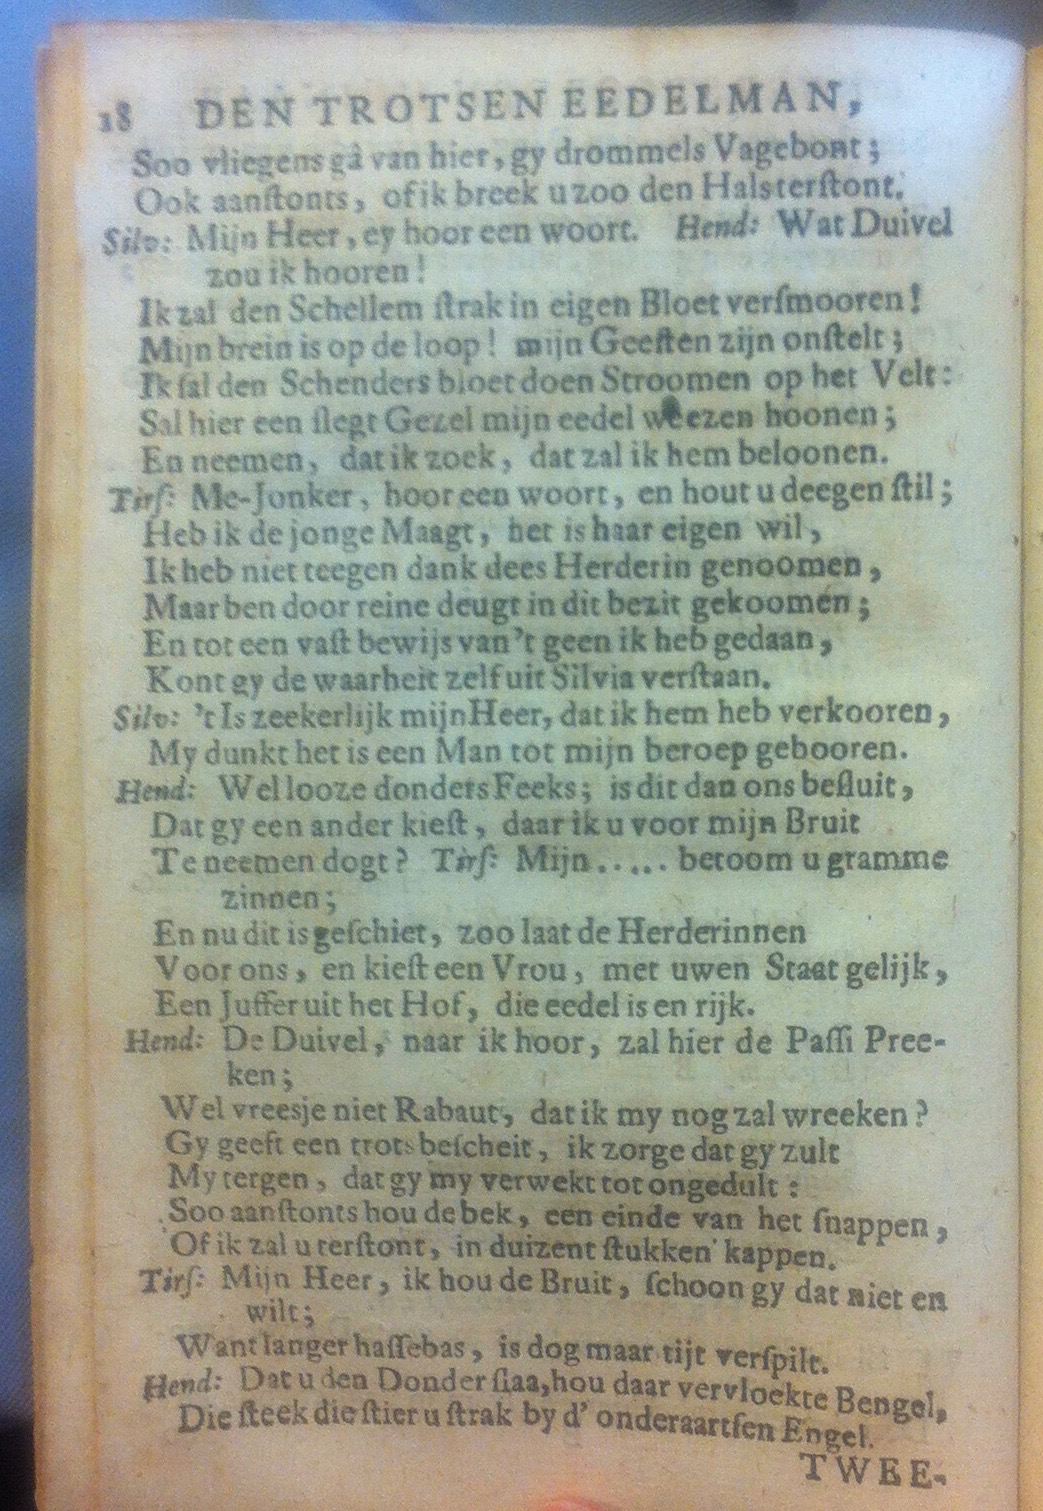 18 DEN TROTSEN EEDELMAN,
Soo vliegens gâ van hier, gy drommels Vagebont;
Ook aanſtonts, of ik breek u zoo den Halsterſtont.
Silv: Mijn Heer, ey hoor een woort. Hend: Wat Duivel
zou ik hooren!
Ik zal den Schellem ſtrak in eigen Bloet verſmooren!
Mijn brein is op de loop! mijn Geeſten zijn onſtelt;
Ik ſal den Schenders bloet doen Stroomen op het Velt:
Sal hier een ſlegt Gezel mijn eedel weezen hoonen;
En neemen, dat ik zoek, dat zal ik hem beloonen.
Tirſ: Me-Jonker, hoor een woort, en hout u deegen ſtil;
Heb ik de jonge Maagt, het is haar eigen wil,
Ik heb niet teegen dank dees Herderin genoomen,
Maar ben door reine deugt in dit bezit gekoomen;
En tot een vaſt bewijs van 't geen ik heb gedaan,
Kont gy de waarheit zelf uit Silvia verſtaan.
Silv: 't Is zeekerlijk mijn Heer, dat ik hem heb verkooren,
My dunkt het is een Man tot mijn beroep gebooren.
Hend: Wel looze donders Feeks; is dit dan ons beſluit,
Dat gy een ander kieſt, daar ik u voor mijn Bruit
Te neemen dogt? Tirſ: Mijn..... betoom u gramme
zinnen;
En nu dit is geſchiet, zoo laat de Herderinnen
Voor ons, en kieſt een Vrou, met uwen Staat gelijk,
Een Juffer uit het Hof, die eedel is en rijk.
Hend: De Duivel, naar ik hoor, zal hier de Paſſi Pree-
ken;
Wel vreesje niet Rabaut, dat ik my nog zal wreeken?
Gy geeft een trots beſcheit, ik zorge dat gy zult
My tergen, dat gy my verwekt tot ongedult:
Soo aanſtonts hou de bek, een einde van het ſnappen,
Of ik zal u terſtont, in duizent ſtukken kappen.
Tirſ: Mijn Heer, ik hou de Bruit, ſchoon gy dat niet en
wilt;
Want langer haſſebas, is dog maar tijt verſpilt.
Hend: Dat u den Donder ſlaa, hou daar vervloekte Bengel,
Die ſteek die ſtier u ſtrak by d' onderaartſen Engel.
TWEE-